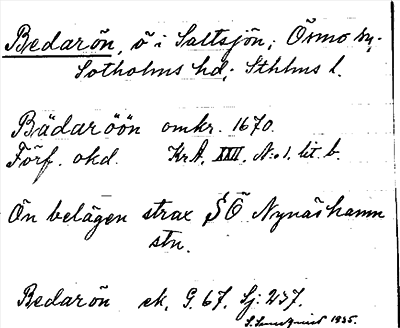 Bedarön, ö i Saltsjön; Ösmo sn,
Sotholms hd; Sthlms l.
Bädaröön omkr. 1670.
Förf. okd. KrA. XXII. N:o 1. lit b.
Ön belägen strax SÖ Nynäshamn
stn.
Bedarön ek. G. 67. Sj: 237.
1935.